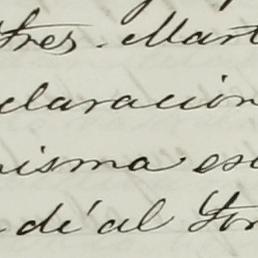 tres. Mart
claracion
misma es
dé al Tor